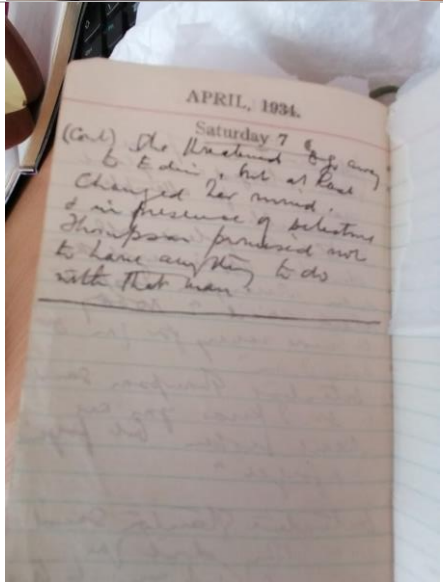 APRIL, 1934.
Saturday 7
(Cont) She threatened to go away
to Edin, but at last
changed her mind.
& in presence of detective
Thompson promised not
to have anything to do
with that man.